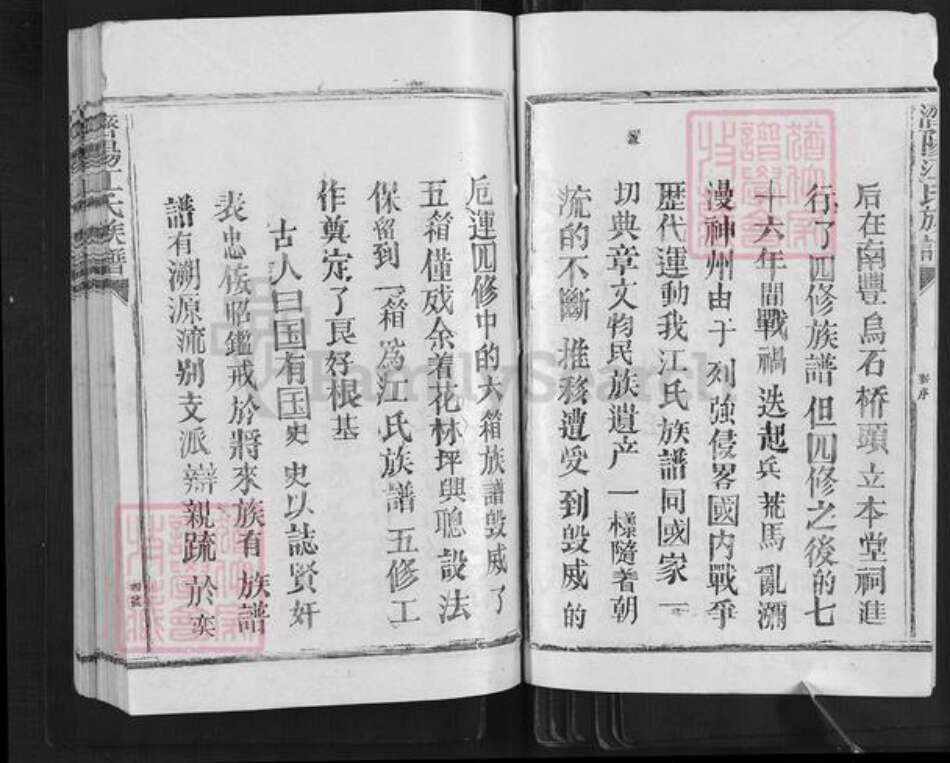 濟陽江氏族譜
后在南豐烏石桥頭立本堂祠進
行了四修族譜但四修之後的七
十六年間戰禍迭起兵荒馬亂瀰
漫神州由于列強侵畧國内戰爭
歷代運動我江氏族譜同國家一
切典章文物民族遺产一樣隨着朝
流的不斷推移遭受到毁威的
厄運四修中的大箱族譜毁威了
五箱僅成余着花林坪與聰設法
保留到一箱為江氏族譜五修工
作奠定了良好根基
古人曰国有国史史以誌賢奸
表忠侫昭鑑戒於將來族有族譜
譜有溯源流别支派辯親疏於奕
濟陽江氏族譜
FamilySearch